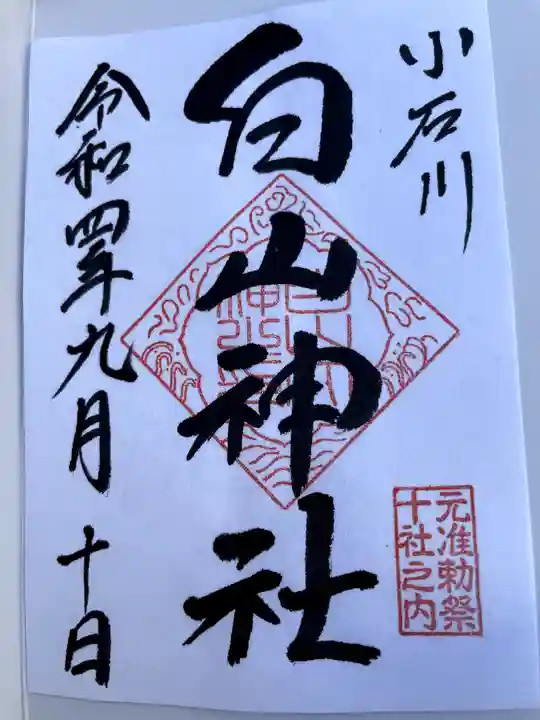 小石川
白山神社
元准勅祭
十社之内
令和四年九月十日